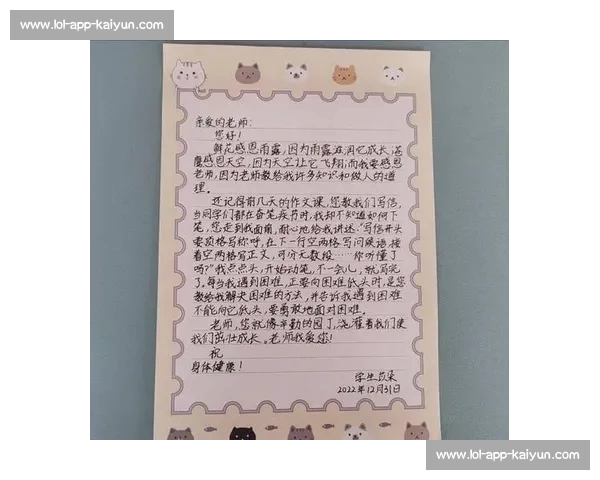 www.lol-app-kaiyun.com
亲爱的老师：
您好！
鲜花感恩雨露，因为雨露滋润它成长；苍
鹰感恩天空，因为天空让它飞翔；而我要感恩
老师，因为老师教给我许多知识和做人的道
理。
还记得前几天的作文课，您教我们写信，
当同学们都在奋笔疾书时，我却不知道如何下
笔，您走到我面前，耐心地给我讲述：“写信开头
要顶格写称呼，在下一行空两格写问候语，接
着空两格写正文，可分无数段……你听懂了
吗？”我点点头，开始动笔，不一会儿，就写完
了。每当我遇到困难，正要向困难低头时，是您
教给我解决困难的方法，并告诉我遇到困难
不能向它低头，要勇敢地面对困难。
老师，您就像辛勤的园丁，浇灌着我们使
我们茁壮成长。老师我爱您！
祝
身体健康！
学生
2022年12月31日
www.lol-app-kaiyun.com